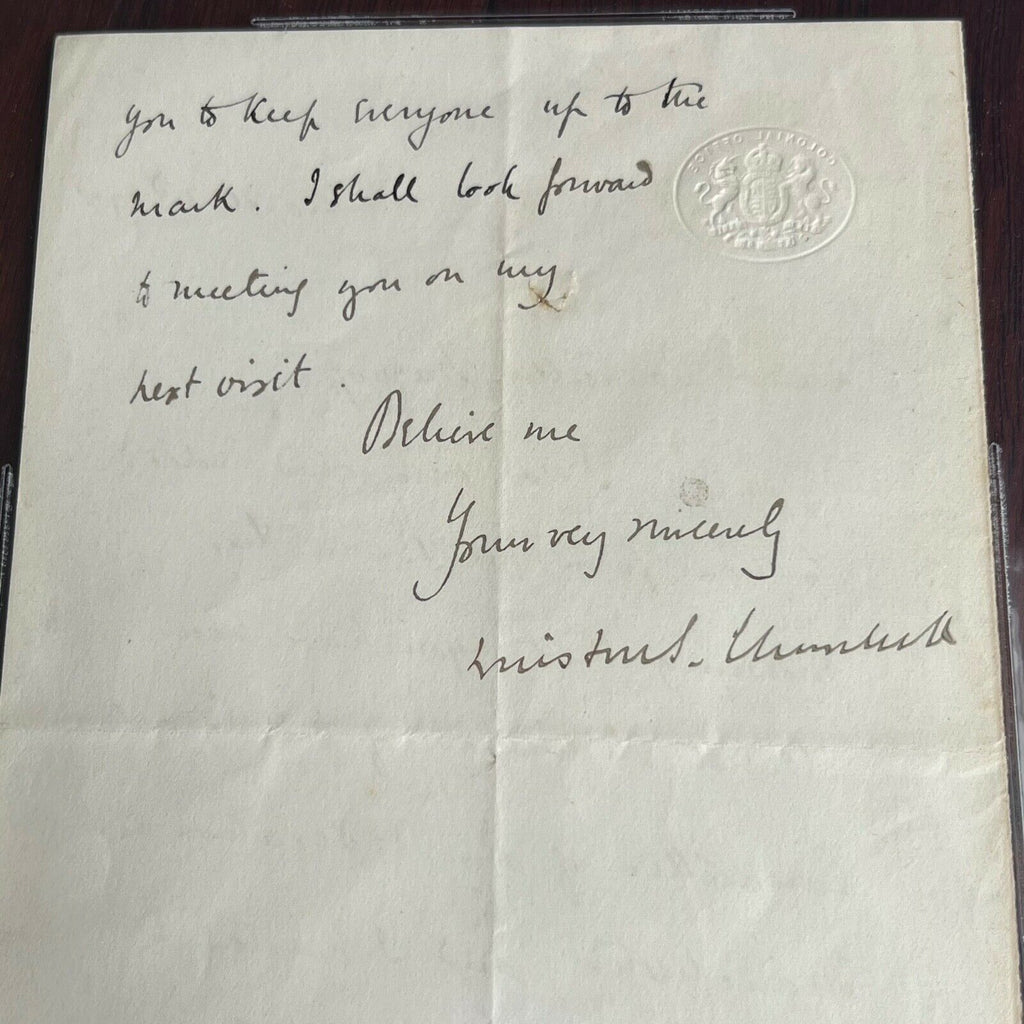 you to keep everyone up to the
mark. I shall look forward
to meeting you on my
next visit.
Believe me
Yours very sincerely
Winston S. Churchill
COLONIAL OFFICE